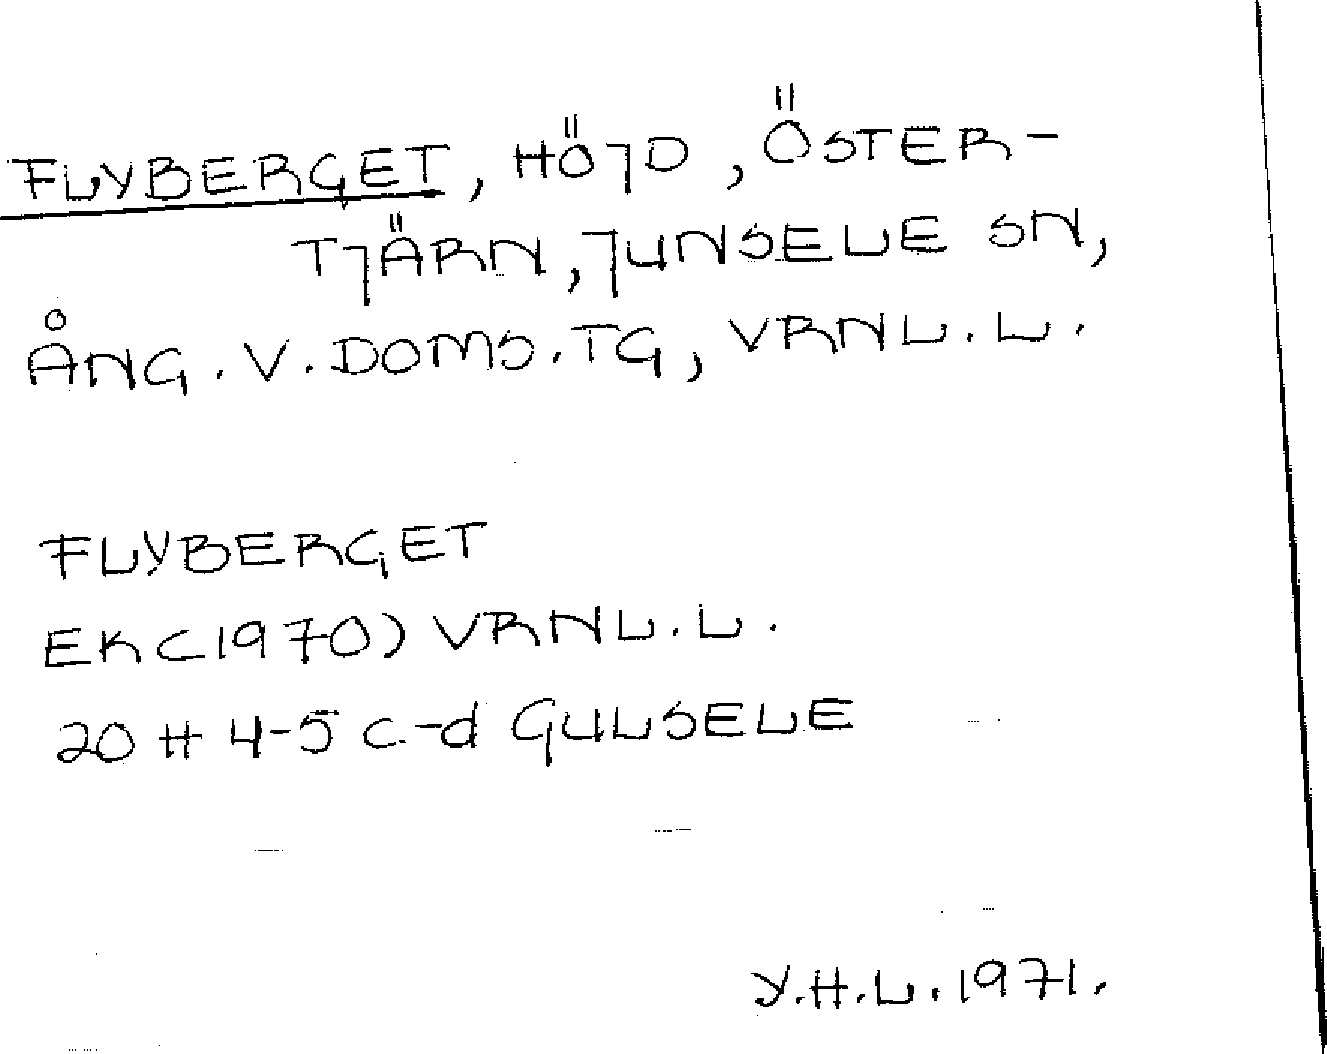 FLYBERGET, HÖJD, ÖSTER-
TJÄRN, JUNSELE SN,
ÅNG. V. DOMS. TG, VRNL. L.
FLYBERGET
EK (1970) VRNL. L.
20 H 4-5 c-d GULSELE
Y.H.L. 1971.